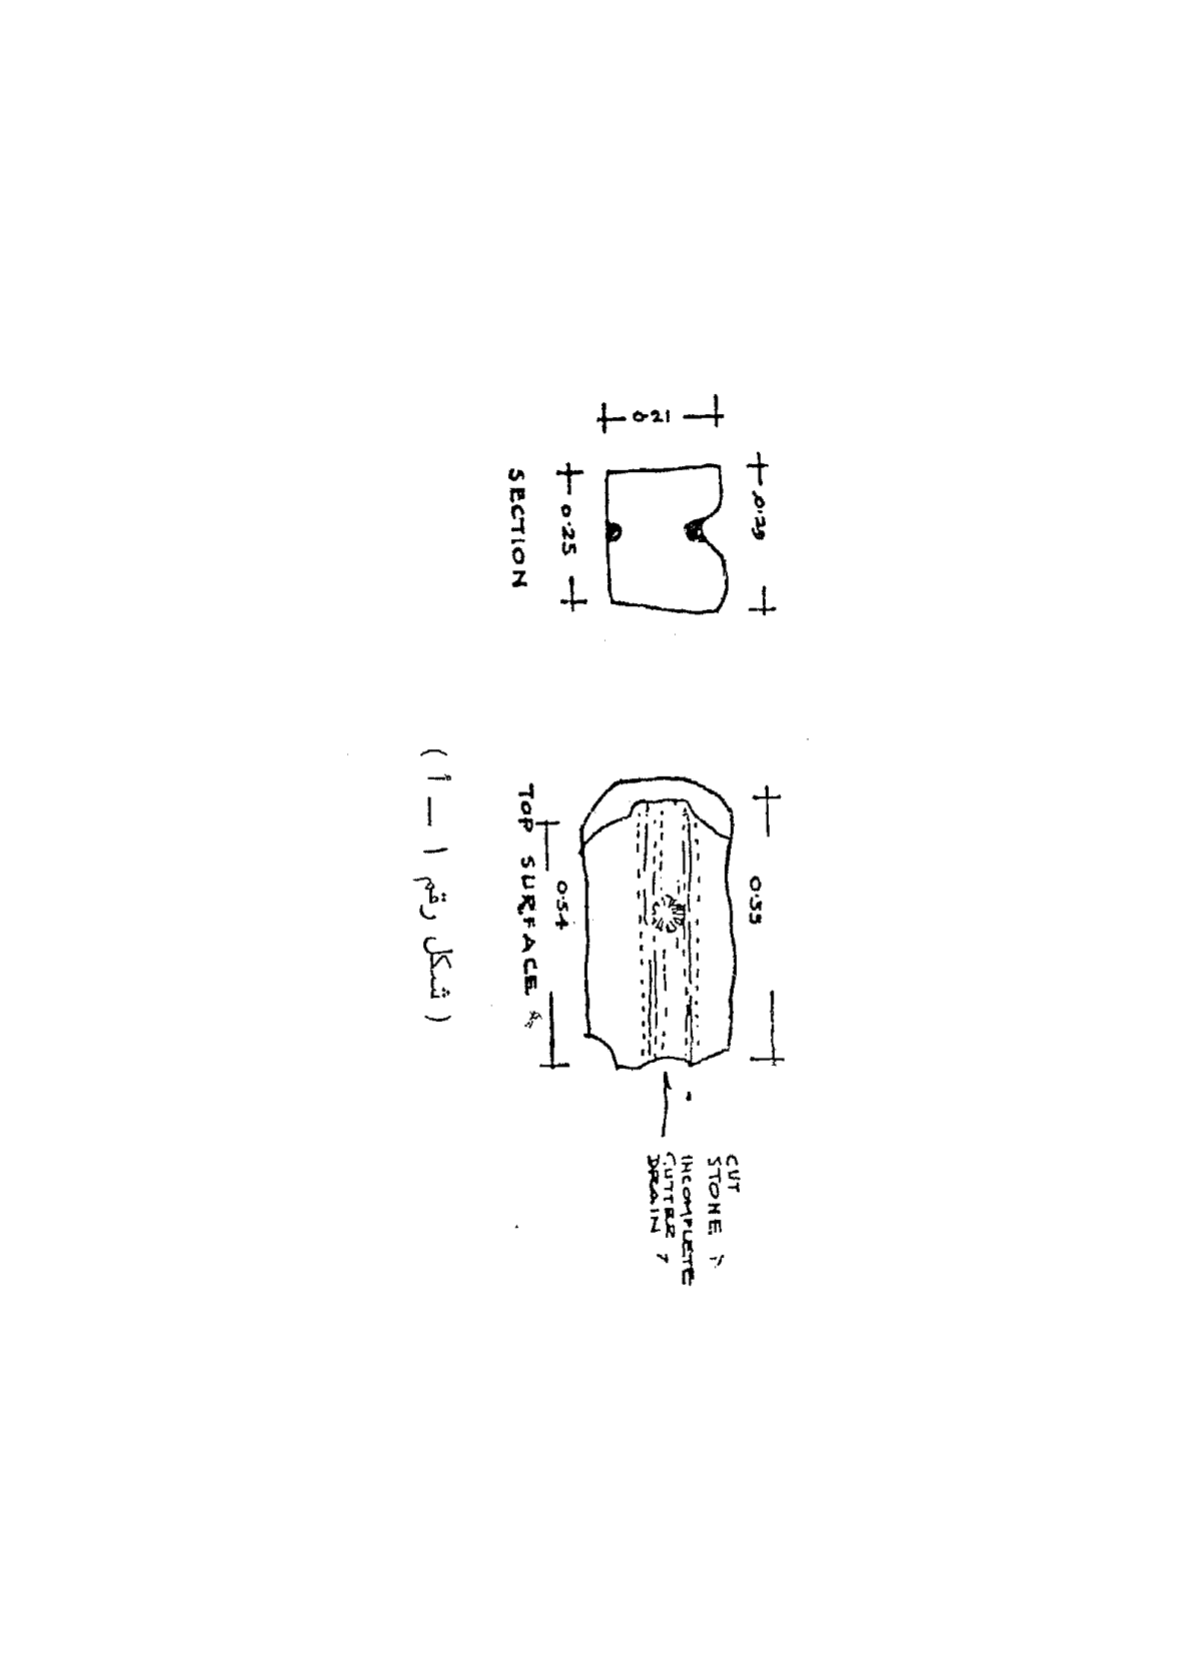 0.21
0.25
SECTION
0.55
0.54
TOP SURFACE
CUT
STONE
INCOMPLETE
GUTTER
DRAIN
(شكل رقم ١ — أ)